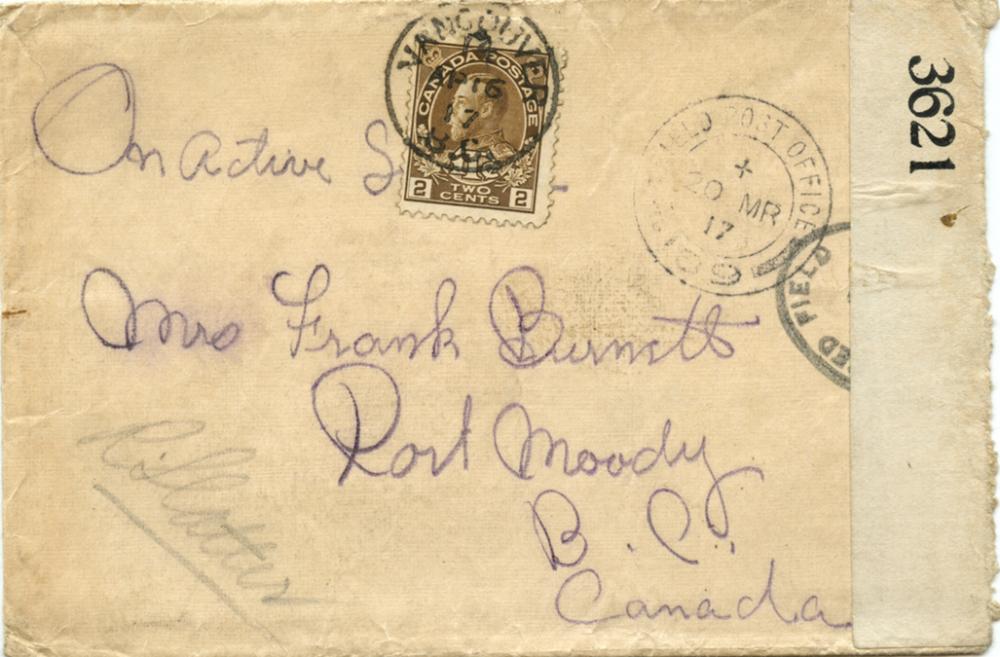 VANCOUVER
16
17
B.C.
CANADA POSTAGE
2 TWO CENTS 2
On Active S
FIELD POST OFFICE
20 MR
17
3621
FIELD
Mrs Frank Burnett
Port Moody
B.C.
Canada